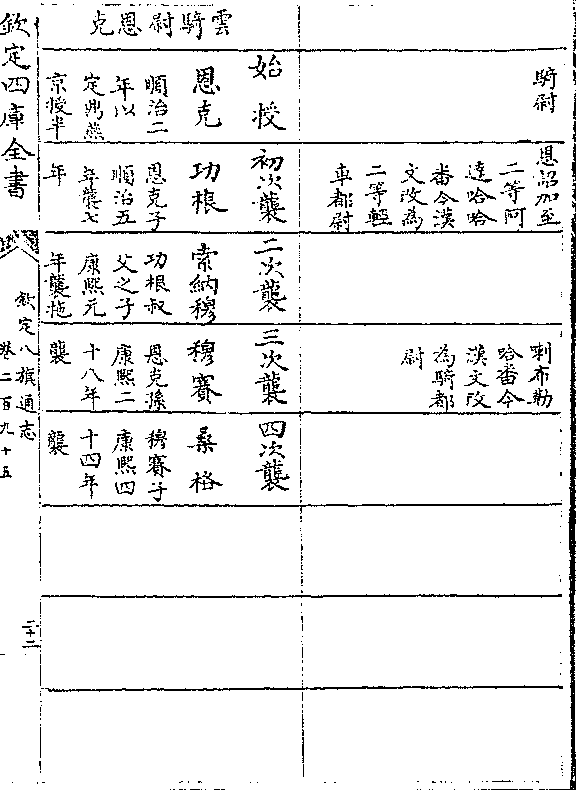 騎尉
恩詔加至
二等阿
達哈哈
番今漢
文改為
二等輕
車都尉
喇布勒
哈番今
漢文改
為騎都
尉
雲騎尉恩克
始授
恩克
順治二
年以
定鼎燕
京授半
初次襲
功根
恩克子
順治五
年襲七
年
二次襲
索納穆
功根叔
父之子
康熙元
年襲拖
三次襲
穆賽
恩克孫
康熙二
十八年
襲
四次襲
桑格
穆賽子
康熙四
十四年
襲
欽定四庫全書
欽定八旗通志
卷二百九十五